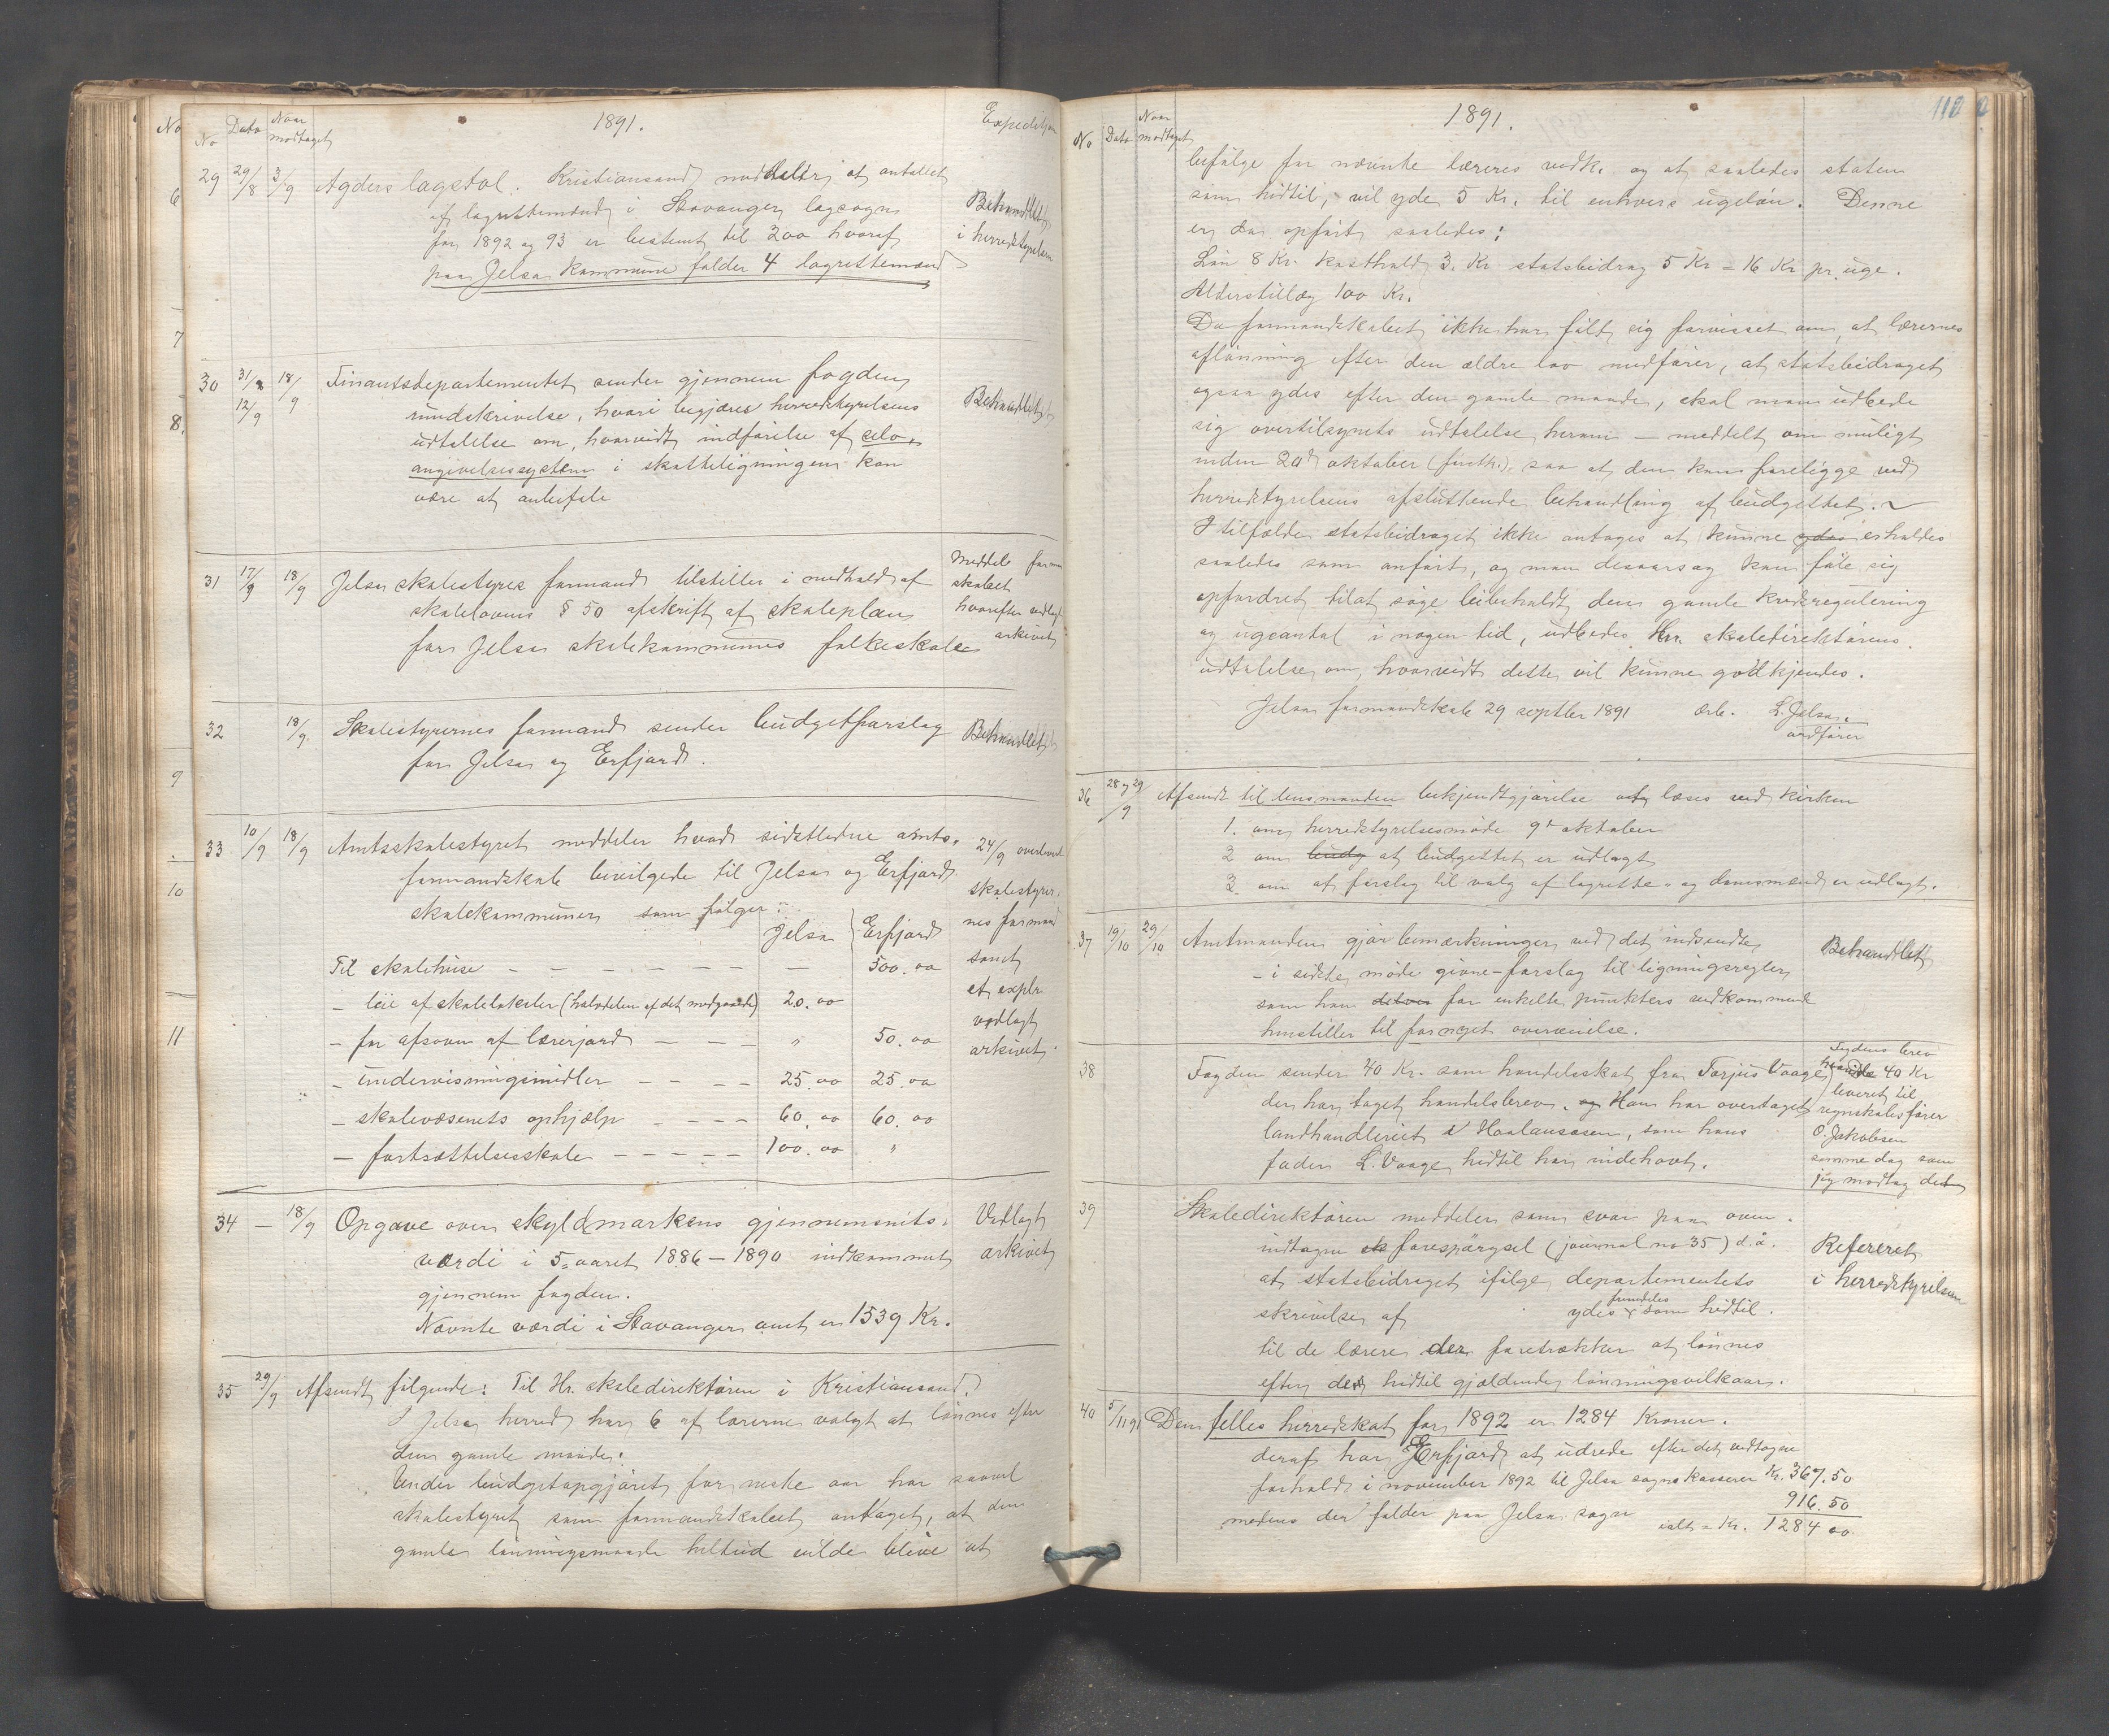 No
6
7
8.
9
10
11
No Dato Naar modtaget 1891. Expedition
29 29/8 3/9 Agders lagstol. Kristiansand, meddeler, at antallet
af lagrettemænd i Stavanger lagsogn
for 1892 og 93 er bestemt til 200 hvoraf
paa Jelsa kommune falder 4 lagrettemænd
Behandlet
i herredstyrelsen
30 31/8 12/9 18/9 Finantsdepartementet sender gjennem fogden
rundskrivelse, hvori begjæres herredstyrelsens
udtalelse om, hvorvidt indførelse af selv-
angivelsessystem i skatteligningen kan
være at anbefale
Behandlet
31 17/9 18/9 Jelsa skolestyres formand tilstiller i medhold af
skolelovens § 50 afskrift af skoleplan
for Jelsa skolekommunes folkeskole
Meddelt formand
skabet
hvorefter vedlagt
arkivet
32 18/9 Skolestyrernes formand sender budgetforslag
for Jelsa og Erfjord.
Behandlet
33 10/9 18/9 Amtsskolestyret meddeler hvad sidstledne amts-
formandskab bevilgede til Jelsa og Erfjord
skolekommuner som følger:
Jelsa Erfjord
Til skolehuse — — — — — — — 500.00
— leie af skolelokaler (halvdelen af det medgaaede) 20.00
— for afsavn af lærerjord — — — " 50.00
— undervisningsmidler — — — — 25.00 25.00
— skolevæsenets ophjælp — — — — 60.00 60.00
— fortsættelsesskole — — — — — 100.00 "
24/9 overleveret
skolestyrer-
nes formand
samt
et explr.
vedlagt
arkivet.
34 — 18/9 Opgave over skyldmarkens gjennemsnits-
værdi i 5-aaret 1886—1890 indkommet
gjennem fogden.
Nævnte værdi i Stavanger amt er 1539 Kr.
Vedlagt
arkivet
35 29/9 Afsendt følgende: Til Hr. skoledirektøren i Kristiansand.
I Jelsa herred har 6 af lærerne valgt at lønnes efter
den gamle maade.
Under budgetopgjøret for neste aar har saavel
skolestyret som formandskabet antaget, at den
gamle lønningsmaade heltud vilde blive at
No Dato Naar modtaget 1891. 110
befølge for nævnte læreres vedk. og at saaledes staten
som hidtil, vil yde 5 Kr. til enhvers ugeløn. Denne
er da opført saaledes:
Løn 8 Kr. kosthold 3. Kr statsbidrag 5 Kr = 16 Kr pr. uge.
Alderstillæg 100 Kr.
Da formandskabet ikke har følt sig forvisset om, at lærernes
aflønning efter den ældre lov medfører, at statsbidraget
ogsaa ydes efter den gamle maade, skal man udbede
sig overtilsynets udtalelse herom — meddelt om muligt
inden 20d oktober (førstk.), saa at den kan foreligge ved
herredstyrelsens afsluttende behandling af budgettet.
I tilfælde statsbidraget ikke antages at kunne ydes erholdes
saaledes som anført, og man desaarsag kan føle sig
opfordret til at søge bibeholdt den gamle kredsregulering
og ugeantal i nogen tid, udbedes Hr. skoledirektørens
udtalelse om, hvorvidt dette vil kunne godkjendes.
Jelsa formandskab 29 septbr 1891 ærb. L. Jelsa
ordfører
36 28 og 29/9 Afsendt til lensmanden bekjendtgjørelse at læses ved kirken
1. om herredstyrelsesmøde 9d oktober
2 om budg at budgettet er udlagt
3. om at forslag til valg af lagrette- og domsmænd er udlagt.
37 19/10 29/10 Amtmanden gjør bemærkninger ved det indsendte
— i sidste møde givne — forslag til ligningsregler
som han for enkelte punkters vedkommende
henstiller til fornyet overveielse.
Behandlet
38 Fogden sender 40 Kr. som handelsskat fra Torjus Vaage,
der har taget handelsbrev. og Han har overtaget
landhandleriet i Haalandsosen, som hans
fader L. Vaage, hidtil har indehavt.
Fogdens brev
40 Kr
leveret til
regnskabsfører
O. Jakobsen
samme dag som
jeg modtog det
39 Skoledirektøren meddeler som svar paa oven-
indtagne forespørgsel (journal no 35) d.å.
at statsbidraget ifølge departementets
skrivelse af ydes fremdeles som hidtil
til de lærere der foretrækker at lønnes
efter de hidtil gjældende lønningsvilkaar.
Refereret
i herredstyrelsen
40 5/11 91 Den felles herredskat for 1892 er 1284 Kroner.
deraf har Erfjord at udrede efter det vedtagne
forhold i november 1892 til Jelsa sognekasserer Kr. 367.50
medens der falder paa Jelsa sogn 916.50
ialt = Kr. 1284 00